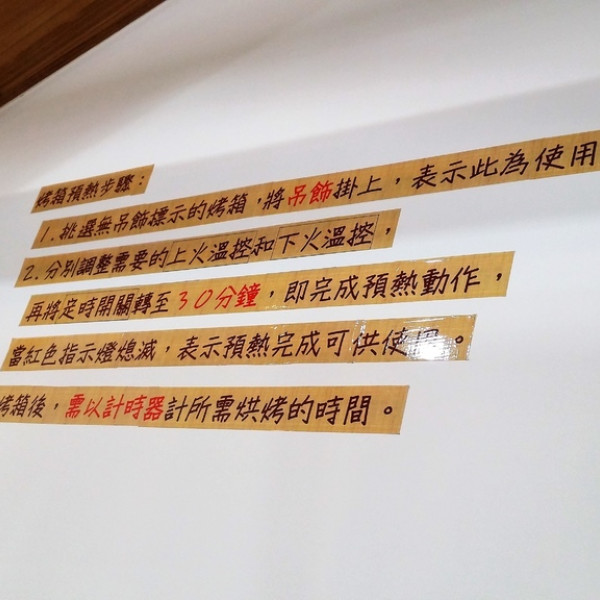 烤箱預熱步驟：
1. 挑選無吊飾標示的烤箱，將吊飾掛上，表示此為使用
2. 分別調整需要的上火溫控和下火溫控，
再將定時開關轉至30分鐘，即完成預熱動作，
當紅色指示燈熄滅，表示預熱完成可供使用。
烤箱後，需以計時器計所需烘烤的時間。